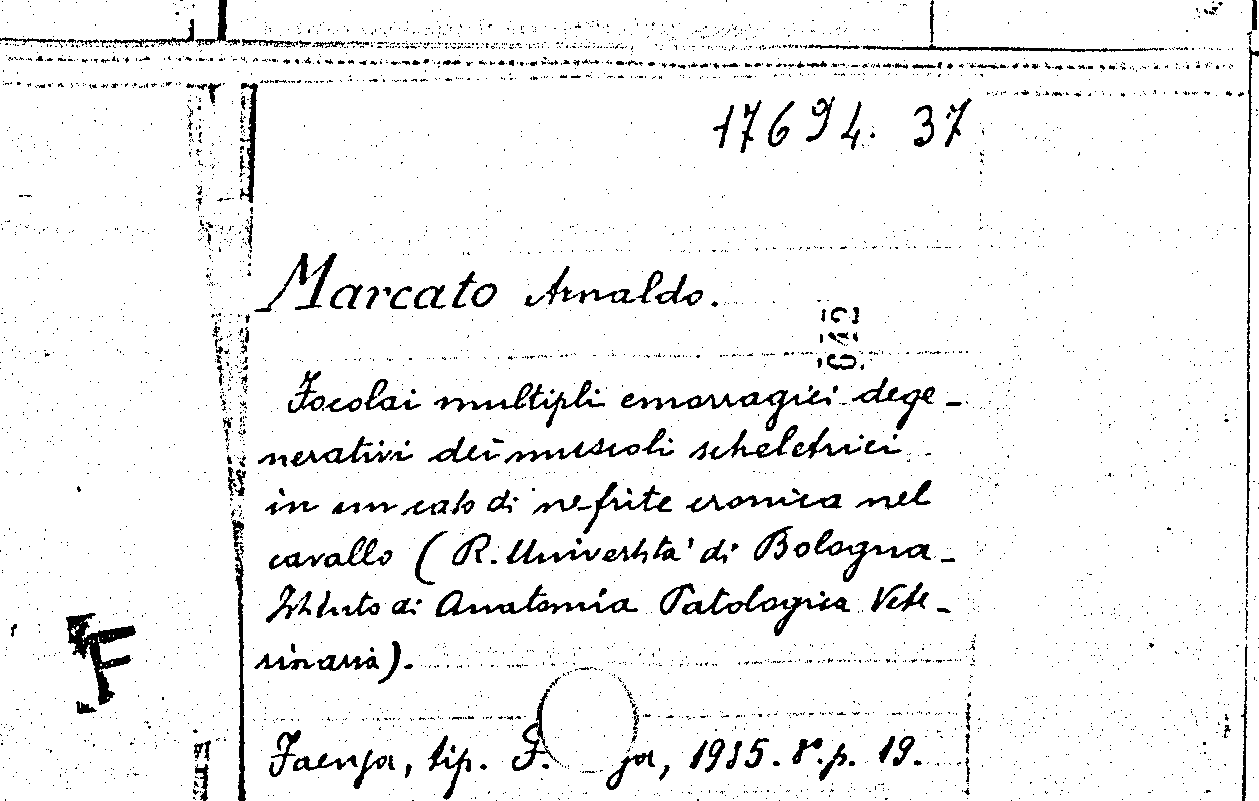 17694. 37
Marcato Arnaldo.
Focolai multipli emorragici dege-
nerativi dei muscoli scheletrici
in un caso di nefrite cronica nel
cavallo (R. Università di Bologna-
Istituto di Anatomia Patologica Vete-
rinaria).
Faenza, tip. F. 1935. 8°. p. 19.
F